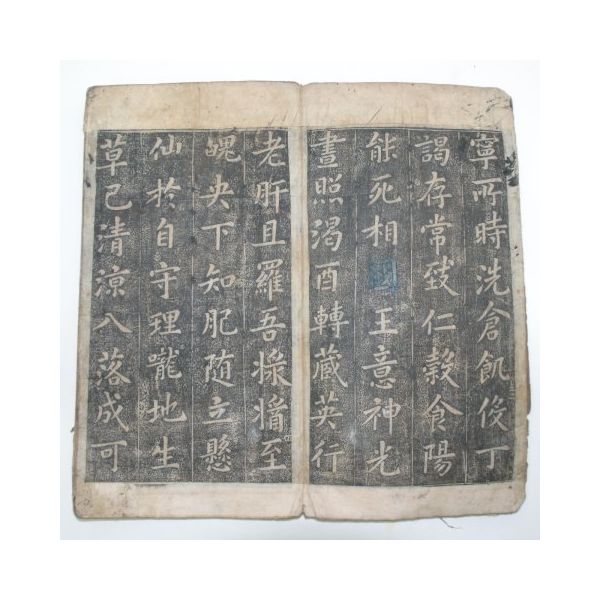 寧所時洗倉飢俊丁
謁存常致仁穀食陽
能死相國王意神光
晝照渴酉轉藏英行
老肝且羅吾至
央下知肥随立懸
仙於自守理嚨地生
草已清涼八落成可